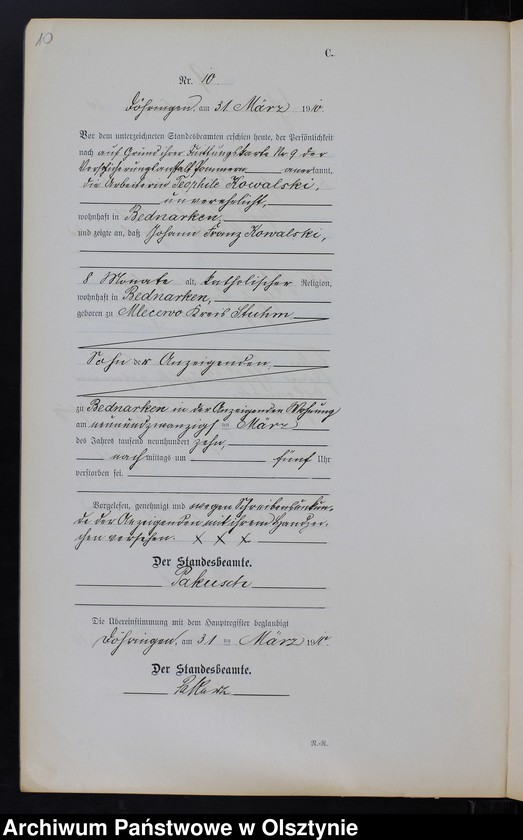 10
C.
Nr. 10
Döhringen, am 31 März 1910.
Vor dem unterzeichneten Standesbeamten erschien heute, der Persönlichkeit
nach auf Grund ihrer Quittungskarte Nr 9 der
Versicherungsanstalt Pommern anerkannt,
die Arbeiterin Teophile Kowalski,
unverehelicht,
wohnhaft in Bednarken,
und zeigte an, daß Johann Franz Kowalski,
8 Monate alt, katholischer Religion,
wohnhaft in Bednarken,
geboren zu Mlecewo Kreis Stuhm
Sohn der Anzeigenden,
zu Bednarken in der Anzeigenden Wohnung
am neunundzwanzigsten März
des Jahres tausend neunhundert zehn,
nachmittags um fünf Uhr
verstorben sei.
Vorgelesen, genehmigt und wegen Schreibensunkun-
de der Anzeigenden mit ihrem Handzei-
chen versehen. X X X
Der Standesbeamte.
Die Übereinstimmung mit dem Hauptregister beglaubigt
Döhringen, am 31 ten März 1910.
Der Standesbeamte.
N.-R.
Archiwum Państwowe w Olsztynie